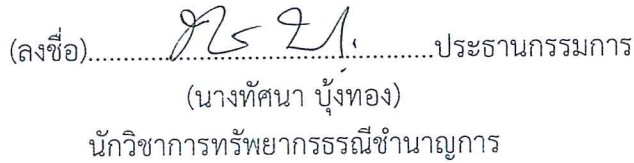 (ลงชื่อ)....................................................ประธานกรรมการ
(นางทัศนา บุ้งทอง)
นักวิชาการทรัพยากรธรณีชำนาญการ